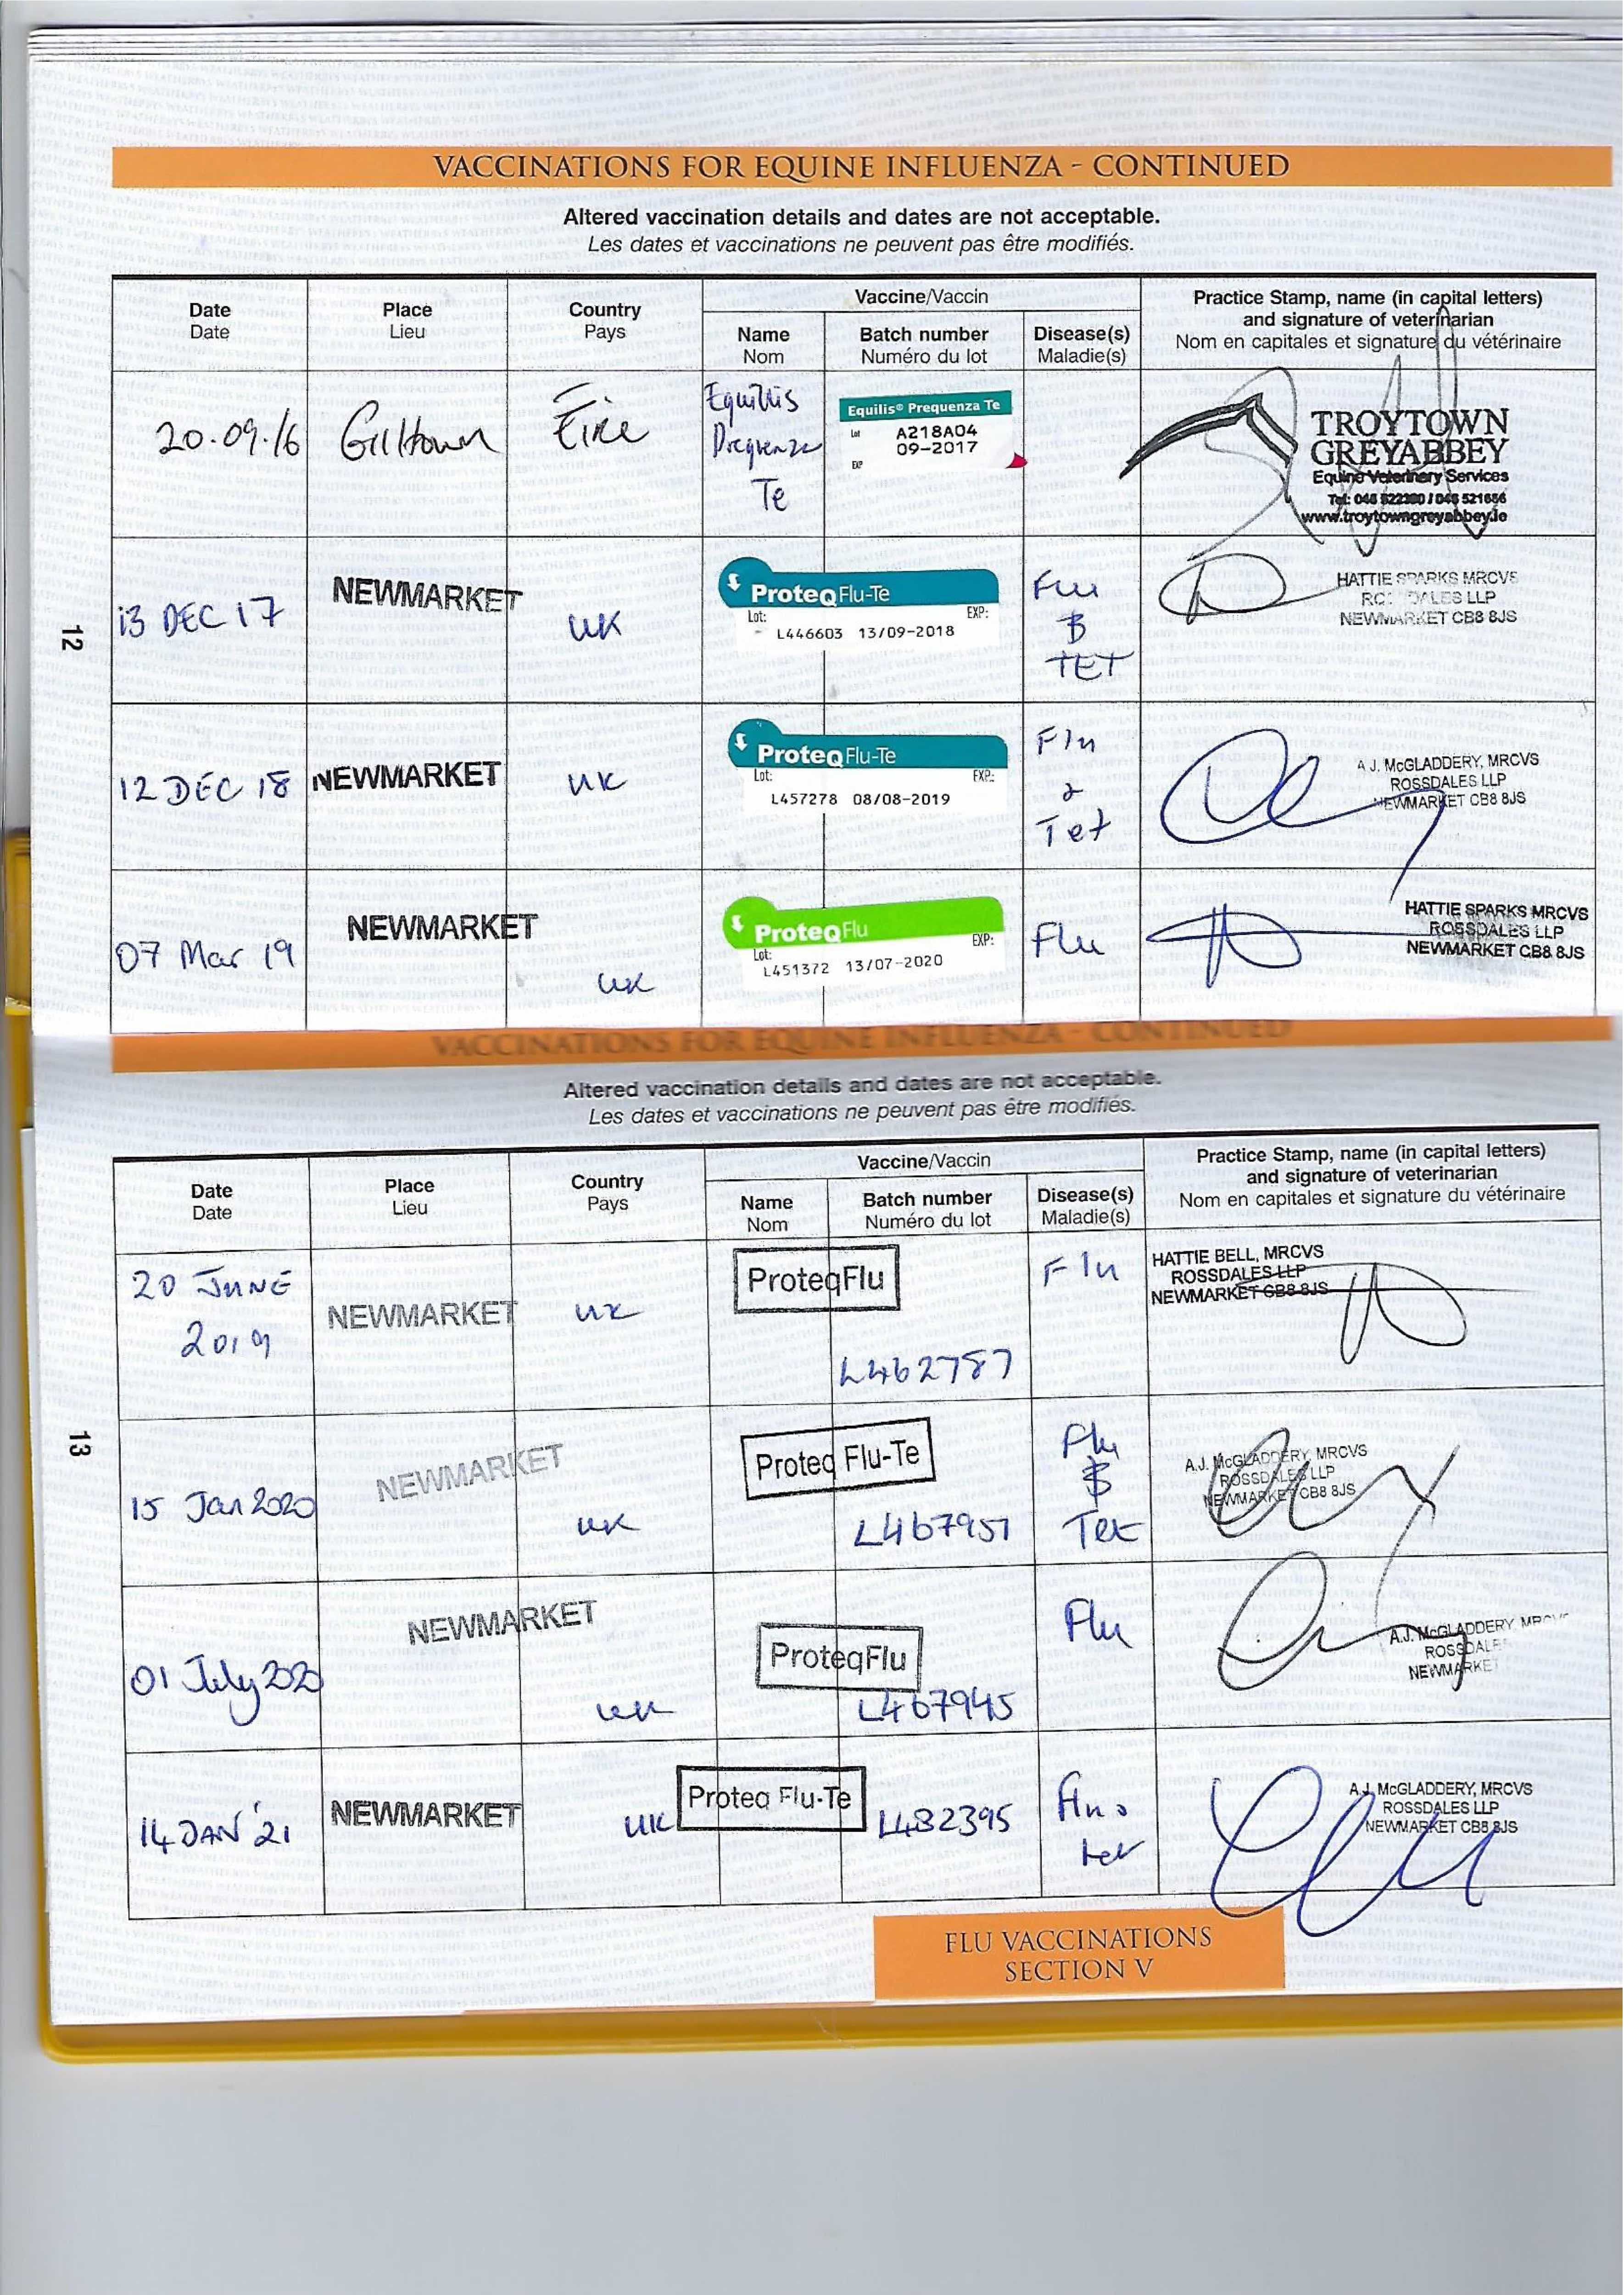 VACCINATIONS FOR EQUINE INFLUENZA - CONTINUED
Altered vaccination details and dates are not acceptable.
Les dates et vaccinations ne peuvent pas être modifiés.
Date
Date
Place
Lieu
Country
Pays
Vaccine/Vaccin
Name
Nom
Batch number
Numéro du lot
Disease(s)
Maladie(s)
Practice Stamp, name (in capital letters)
and signature of veterinarian
Nom en capitales et signature du vétérinaire
20.09.16
Gilltown
Éire
Equillis
Prequenza
Te
Equilis® Prequenza Te
Lot A218A04
09-2017
EXP
TROYTOWN
GREYABBEY
Equine Veterinary Services
Tel: 045 522300 / 045 521686
www.troytowngreyabbey.ie
13 DEC 17
NEWMARKET
UK
ProteqFlu-Te
Lot: EXP:
L446603 13/09-2018
Flu
&
TET
HATTIE SPARKS MRCVS
ROSSDALES LLP
NEWMARKET CB8 8JS
12
12 DEC 18
NEWMARKET
UK
ProteqFlu-Te
Lot: EXP:
L457278 08/08-2019
Flu
&
Tet
A J. McGLADDERY, MRCVS
ROSSDALES LLP
NEWMARKET CB8 8JS
07 Mar 19
NEWMARKET
UK
ProteqFlu
Lot: EXP:
L451372 13/07-2020
Flu
HATTIE SPARKS MRCVS
ROSSDALES LLP
NEWMARKET CB8 8JS
VACCINATIONS FOR EQUINE INFLUENZA - CONTINUED
Altered vaccination details and dates are not acceptable.
Les dates et vaccinations ne peuvent pas être modifiés.
Date
Date
Place
Lieu
Country
Pays
Vaccine/Vaccin
Name
Nom
Batch number
Numéro du lot
Disease(s)
Maladie(s)
Practice Stamp, name (in capital letters)
and signature of veterinarian
Nom en capitales et signature du vétérinaire
20 JUNE
2019
NEWMARKET
UK
ProteqFlu
L462787
Flu
HATTIE BELL, MRCVS
ROSSDALES LLP
NEWMARKET CB8 8JS
13
15 Jan 2020
NEWMARKET
UK
Proteq Flu-Te
L467951
Flu
&
Tet
A.J. McGLADDERY, MRCVS
ROSSDALES LLP
NEWMARKET CB8 8JS
01 July 2020
NEWMARKET
UK
ProteqFlu
L467945
Flu
A.J. McGLADDERY MRCVS
ROSSDALES
NEWMARKET
14 JAN '21
NEWMARKET
UK
Proteq Flu-Te
L482395
Flu &
tet
A.J. McGLADDERY, MRCVS
ROSSDALES LLP
NEWMARKET CB8 8JS
FLU VACCINATIONS
SECTION V